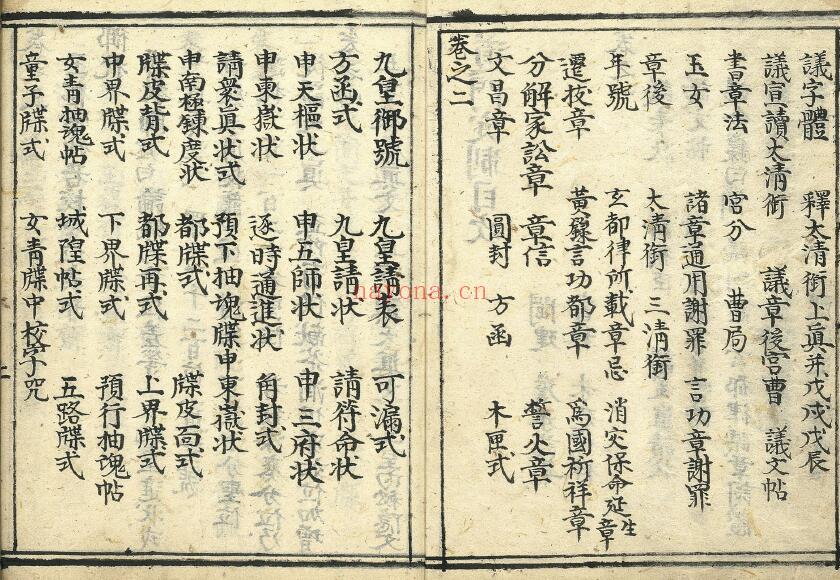 議字體 釋太清銜上眞并戊戌戊辰
議宣讀太清銜 議章後宮曹 議文帖
書章法 宮分 曹局
玉女 諸章通用謝罪 言功章謝罪
章後 太清銜 三清銜
年號 玄都律所載章忌 消灾保命延生章
遷拔章 黃籙言功都章 爲國祈祥章
分解冢訟章 章信 誓火章
文昌章 圓封 方函 木匣式
卷之二
九皇御號 九皇請表 可漏式
方函式 九皇請状 請符命状
申天樞状 申五師状 申三府状
申東嶽状 逐時通進状 角封式
請衆眞状式 預下抽魂牒申東嶽状
申南極鍊度状 都牒式 牒皮面式
牒皮背式 都牒再式 上界牒式
中界牒式 下界牒式 預行抽魂帖
女青抽魂帖 城隍帖式 五路牒式
童子牒式 女青牒中校字咒
nayona.cn